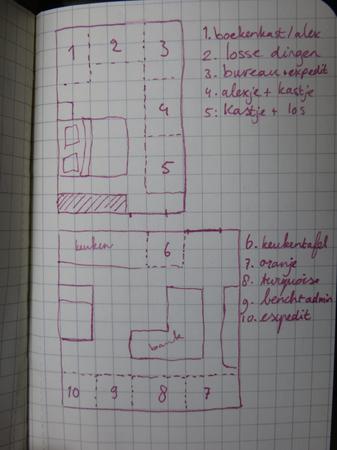 1. boekenkast/alex
2. losse dingen
3. bureau + expedit
4. alexje + kastje
5: Kastje + los
1 2 3
4
5
keuken 6
bank
10 9 8 7
6. keukentafel
7. oranje
8. turquoise
9. bench+admin
10. expedit